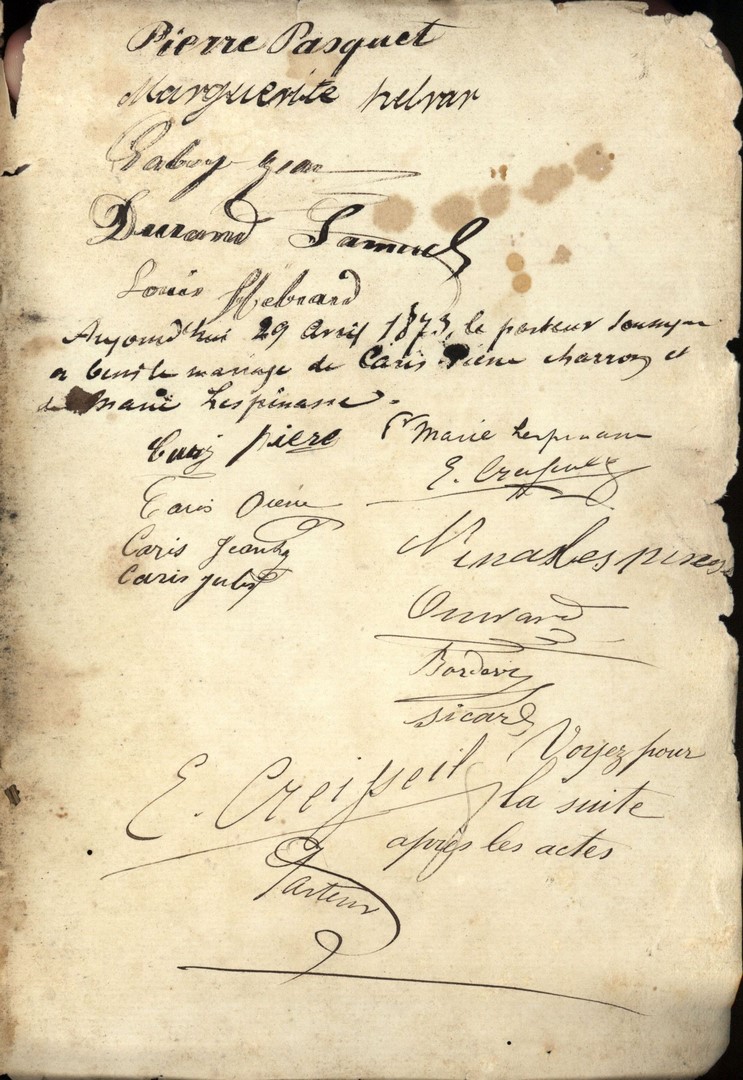 Pierre Pasquet
Marguerite
Laboy Jean
Durand Samuel
Louis Hébrard
Aujourd'hui 29 Avril 1873, le pasteur soussigné
a beni le mariage de Caris Pierre charron et
de Marie Lespinasse.
Caris piere
Marie Lespinasse
E. Creisseil
Caris Pierre
Caris
Caris
Nina Lespinass
Durand
Sicard
Voyez pour
E. Creisseil
la suite
après les actes
Pasteur